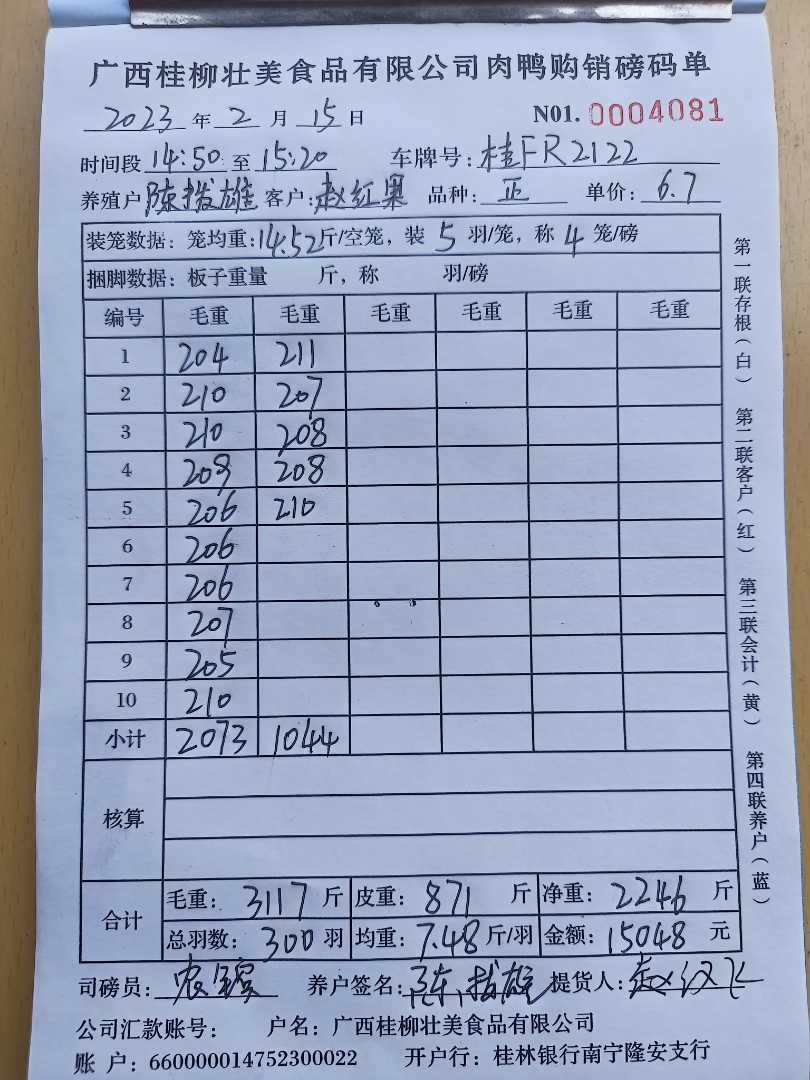 广西桂柳壮美食品有限公司肉鸭购销磅码单
2023 年 2 月 15 日 N01. 0004081
时间段 14:50 至 15:20 车牌号: 桂FR2122
养殖户 陈拨雄 客户: 赵红果 品种: 正 单价: 6.7
装笼数据: 笼均重: 14.52 斤/空笼, 装 5 羽/笼, 称 4 笼/磅
捆脚数据: 板子重量 斤, 称 羽/磅
编号 毛重 毛重 毛重 毛重 毛重 毛重
1 204 211
2 210 207
3 210 208
4 209 208
5 206 210
6 206
7 206
8 207
9 205
10 210
小计 2073 1044
核算
合计 毛重: 3117 斤 皮重: 871 斤 净重: 2246 斤
总羽数: 300 羽 均重: 7.48 斤/羽 金额: 15048 元
司磅员: 农 养户签名: 陈拨雄 提货人: 赵汉飞
公司汇款账号: 户名: 广西桂柳壮美食品有限公司
账 户: 660000014752300022 开户行: 桂林银行南宁隆安支行
第一联存根(白) 第二联客户(红) 第三联会计(黄) 第四联养户(蓝)